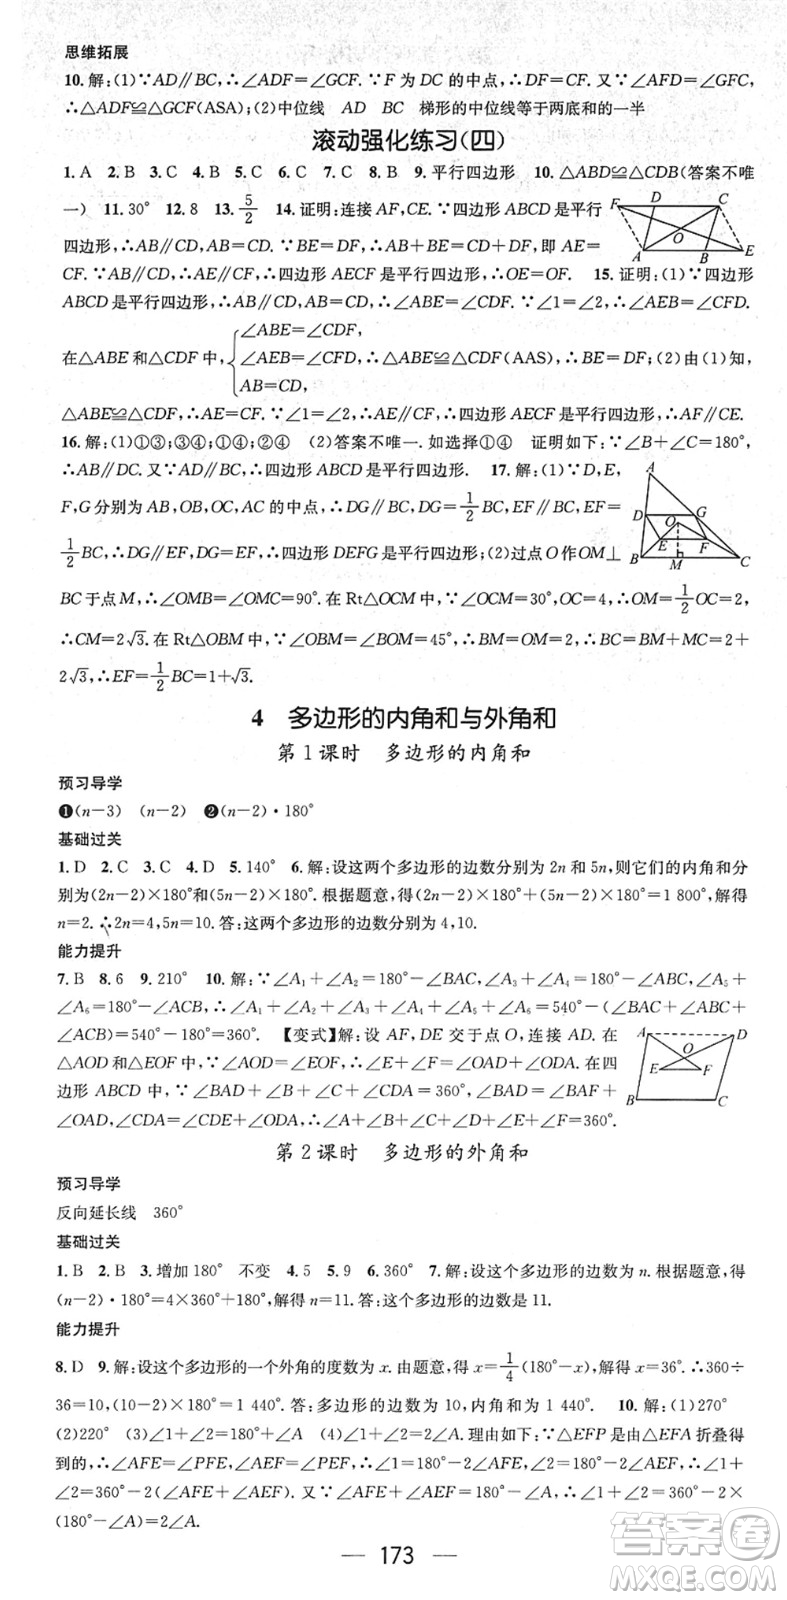 思维拓展
10.解:(1)∵AD∥BC,∴∠ADF=∠GCF.∵F为DC的中点,∴DF=CF.又∵∠AFD=∠GFC,
∴△ADF≌△GCF(ASA);(2)中位线 AD BC 梯形的中位线等于两底和的一半
滚动强化练习(四)
1.A 2.B 3.C 4.B 5.C 6.C 7.C 8.B 9.平行四边形 10.△ABD≌△CDB(答案不唯
一) 11.30° 12.8 13.5/2 14.证明:连接AF,CE.∵四边形ABCD是平行
四边形,∴AB∥CD,AB=CD.又∵BE=DF,∴AB+BE=CD+DF,即AE=
CF.∵AB∥CD,∴AE∥CF,∴四边形AECF是平行四边形,∴OE=OF. 15.证明:(1)∵四边形
ABCD是平行四边形,∴AB=CD,AB∥CD,∴∠ABE=∠CDF.∵∠1=∠2,∴∠AEB=∠CFD.
在△ABE和△CDF中,{∠ABE=∠CDF,
∠AEB=∠CFD,∴△ABE≌△CDF(AAS),∴BE=DF;(2)由(1)知,
AB=CD,
△ABE≌△CDF,∴AE=CF.∵∠1=∠2,∴AE∥CF,∴四边形AECF是平行四边形,∴AF∥CE.
16.解:(1)①③;③④;①④;②④ (2)答案不唯一.如选择①④ 证明如下:∵∠B+∠C=180°,
∴AB∥DC.又∵AD∥BC,∴四边形ABCD是平行四边形. 17.解:(1)∵D,E,
F,G分别为AB,OB,OC,AC的中点,∴DG∥BC,DG=1/2BC,EF∥BC,EF=
1/2BC,∴DG∥EF,DG=EF,∴四边形DEFG是平行四边形;(2)过点O作OM⊥
BC于点M,∴∠OMB=∠OMC=90°.在Rt△OCM中,∵∠OCM=30°,OC=4,∴OM=1/2OC=2,
∴CM=2√3.在Rt△OBM中,∵∠OBM=∠BOM=45°,∴BM=OM=2,∴BC=BM+CM=2+
2√3,∴EF=1/2BC=1+√3.
F D C O A B E
A D G O E F B M C
4 多边形的内角和与外角和
第1课时 多边形的内角和
预习导学
❶(n-3) (n-2) ❷(n-2)·180°
基础过关
1.D 2.C 3.C 4.D 5.140° 6.解:设这两个多边形的边数分别为2n和5n,则它们的内角和分
别为(2n-2)×180°和(5n-2)×180°.根据题意,得(2n-2)×180°+(5n-2)×180°=1 800°,解得
n=2.∴2n=4,5n=10.答:这两个多边形的边数分别为4,10.
能力提升
7.B 8.6 9.210° 10.解:∵∠A₁+∠A₂=180°-∠BAC,∠A₃+∠A₄=180°-∠ABC,∠A₅
+∠A₆=180°-∠ACB,∴∠A₁+∠A₂+∠A₃+∠A₄+∠A₅+∠A₆=540°-(∠BAC+∠ABC+
∠ACB)=540°-180°=360°. 【变式】解:设AF,DE交于点O,连接AD.在
△AOD和△EOF中,∵∠AOD=∠EOF,∴∠E+∠F=∠OAD+∠ODA.在四
边形ABCD中,∵∠BAD+∠B+∠C+∠CDA=360°,∠BAD=∠BAF+
∠OAD,∠CDA=∠CDE+∠ODA,∴∠BAF+∠B+∠C+∠CDE+∠E+∠F=360°.
A D O E F B C
第2课时 多边形的外角和
预习导学
反向延长线 360°
基础过关
1.B 2.B 3.增加180° 不变 4.5 5.9 6.360° 7.解:设这个多边形的边数为n.由题意,得
(n-2)·180°=4×360°+180°,解得n=11.答:这个多边形的边数是11.
能力提升
8.D 9.解:设这个多边形的一个外角的度数为x.由题意,得x=1/4(180°-x),解得x=36°.∴360÷
36=10,(10-2)×180°=1 440°.答:多边形的边数为10,内角和为1 440°. 10.解:(1)270°
(2)220° (3)∠1+∠2=180°+∠A (4)∠1+∠2=2∠A.理由如下:∵△EFP是由△EFA折叠得
到的,∴∠AFE=∠PFE,∠AEF=∠PEF,∴∠1=180°-2∠AFE,∠2=180°-2∠AEF,∴∠1+
∠2=360°-2(∠AFE+∠AEF).又∵∠AFE+∠AEF=180°-∠A,∴∠1+∠2=360°-2×
(180°-∠A)=2∠A.
173
答案圈
MXQE.COM